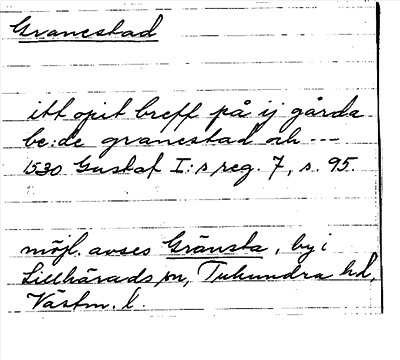 Granestad
itt opit breff på ij gårda
be:de granestad och ---
1530 Gustaf I:s reg. 7, s. 95.
möjl. avses Gränsta, by i
Lillhärads sn, Tuhundra hd,
Västm. l.